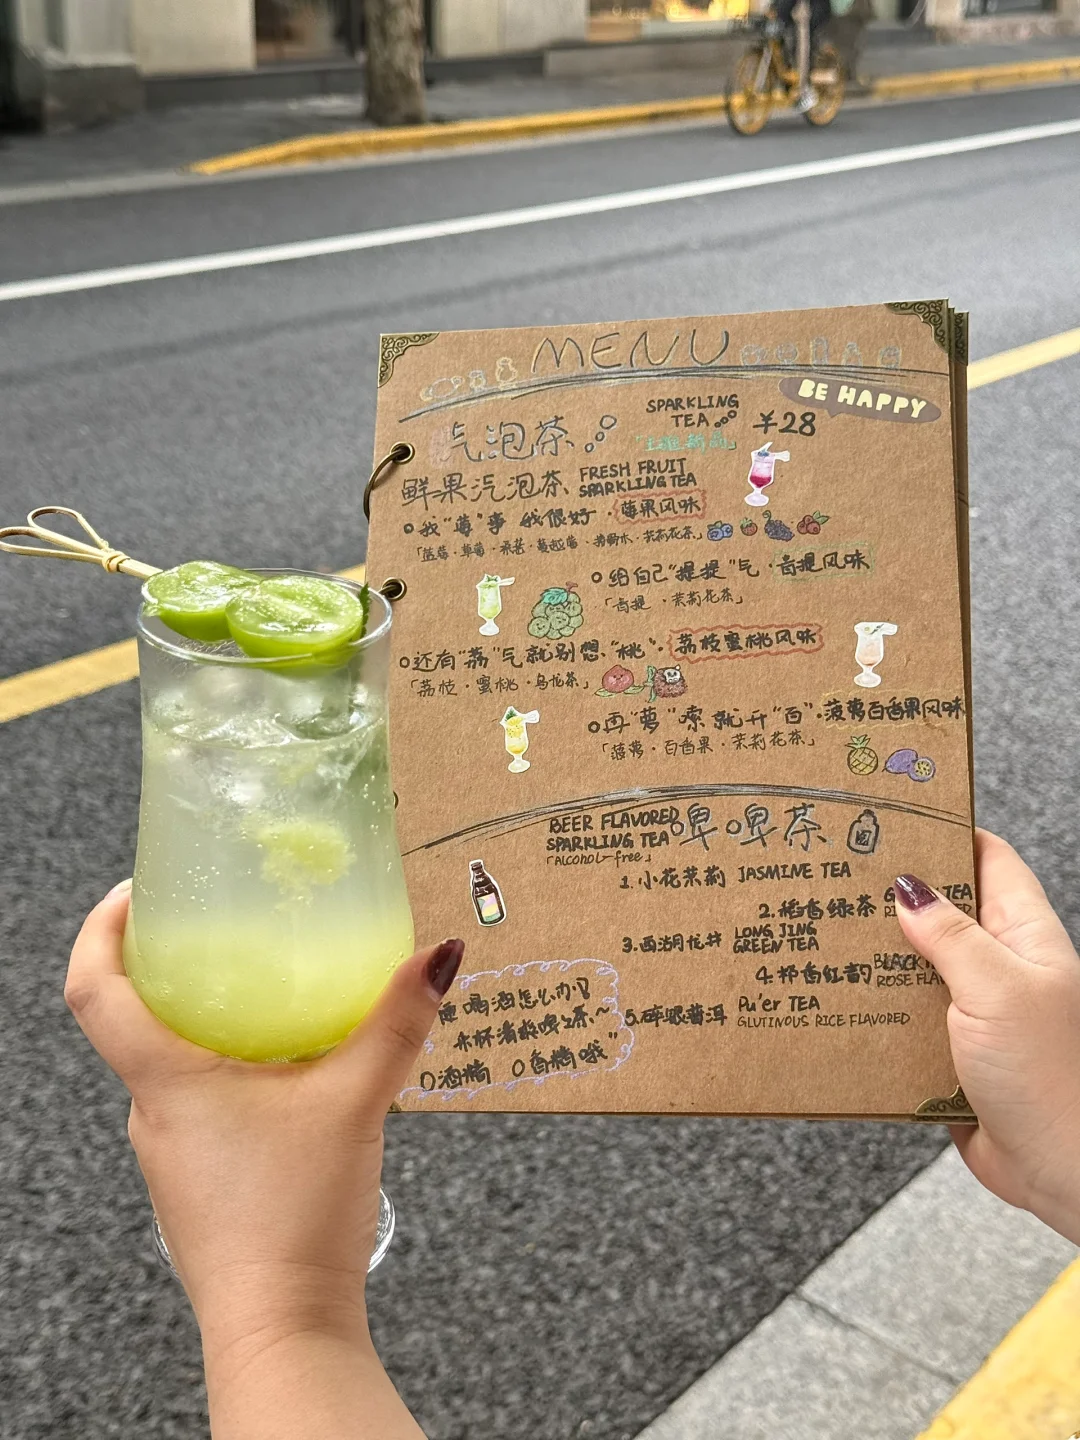 MENU
BE HAPPY
汽泡茶
SPARKLING
TEA
¥28
鲜果汽泡茶 FRESH FRUIT
SPARKLING TEA
我"莓"事 我很好·莓果风味
「蓝莓·草莓·桑葚·蔓越莓·茉莉花茶」
给自己"提提"气·青提风味
「青提·茉莉花茶」
还有"荔"气就别想"桃"·荔枝蜜桃风味
「荔枝·蜜桃·乌龙茶」
再"萝"嗦就开"百"·菠萝百香果风味
「菠萝·百香果·茉莉花茶」
BEER FLAVORED
SPARKLING TEA
「Alcohol-free」
啤啤茶
1.小花茉莉 JASMINE TEA
2.稻香绿茶 TEA
3.西湖龙井 LONG JING
GREEN TEA
4.祁香红韵 BLACK
ROSE FLAV
5.碎银普洱 Pu'er TEA
GLUTINOUS RICE FLAVORED
喝酒怎么办?
来杯清爽啤啤茶~
0酒精 0香精哦"